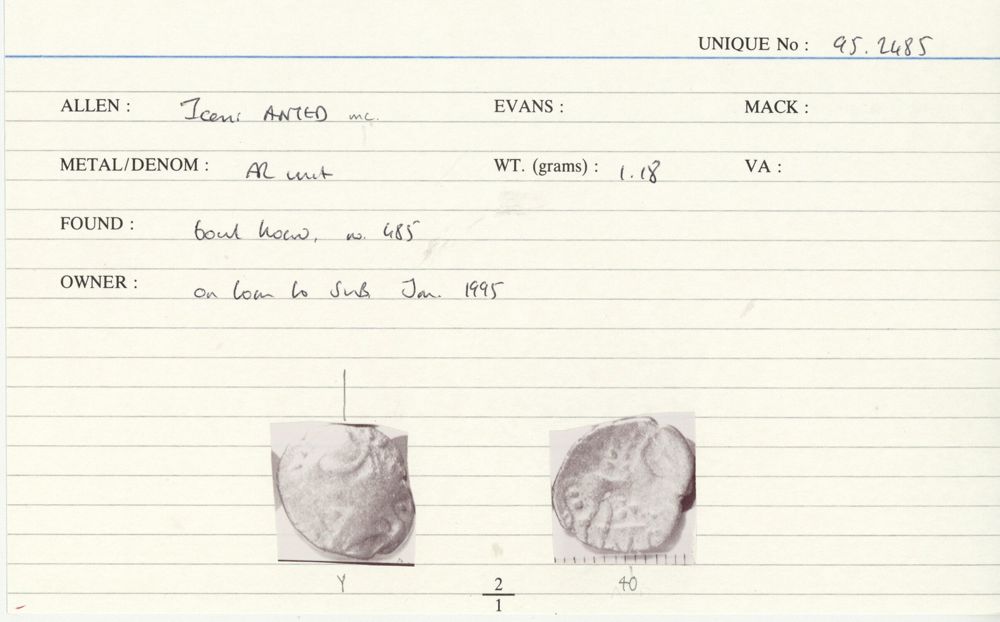 UNIQUE No : 95.2485
ALLEN : Iceni ANTED mc. EVANS : MACK :
METAL/DENOM : AR unit WT. (grams) : 1.18 VA :
FOUND : bowl hoard, no. 485
OWNER : on loan to SUB Jan. 1995
Y 2 40
1